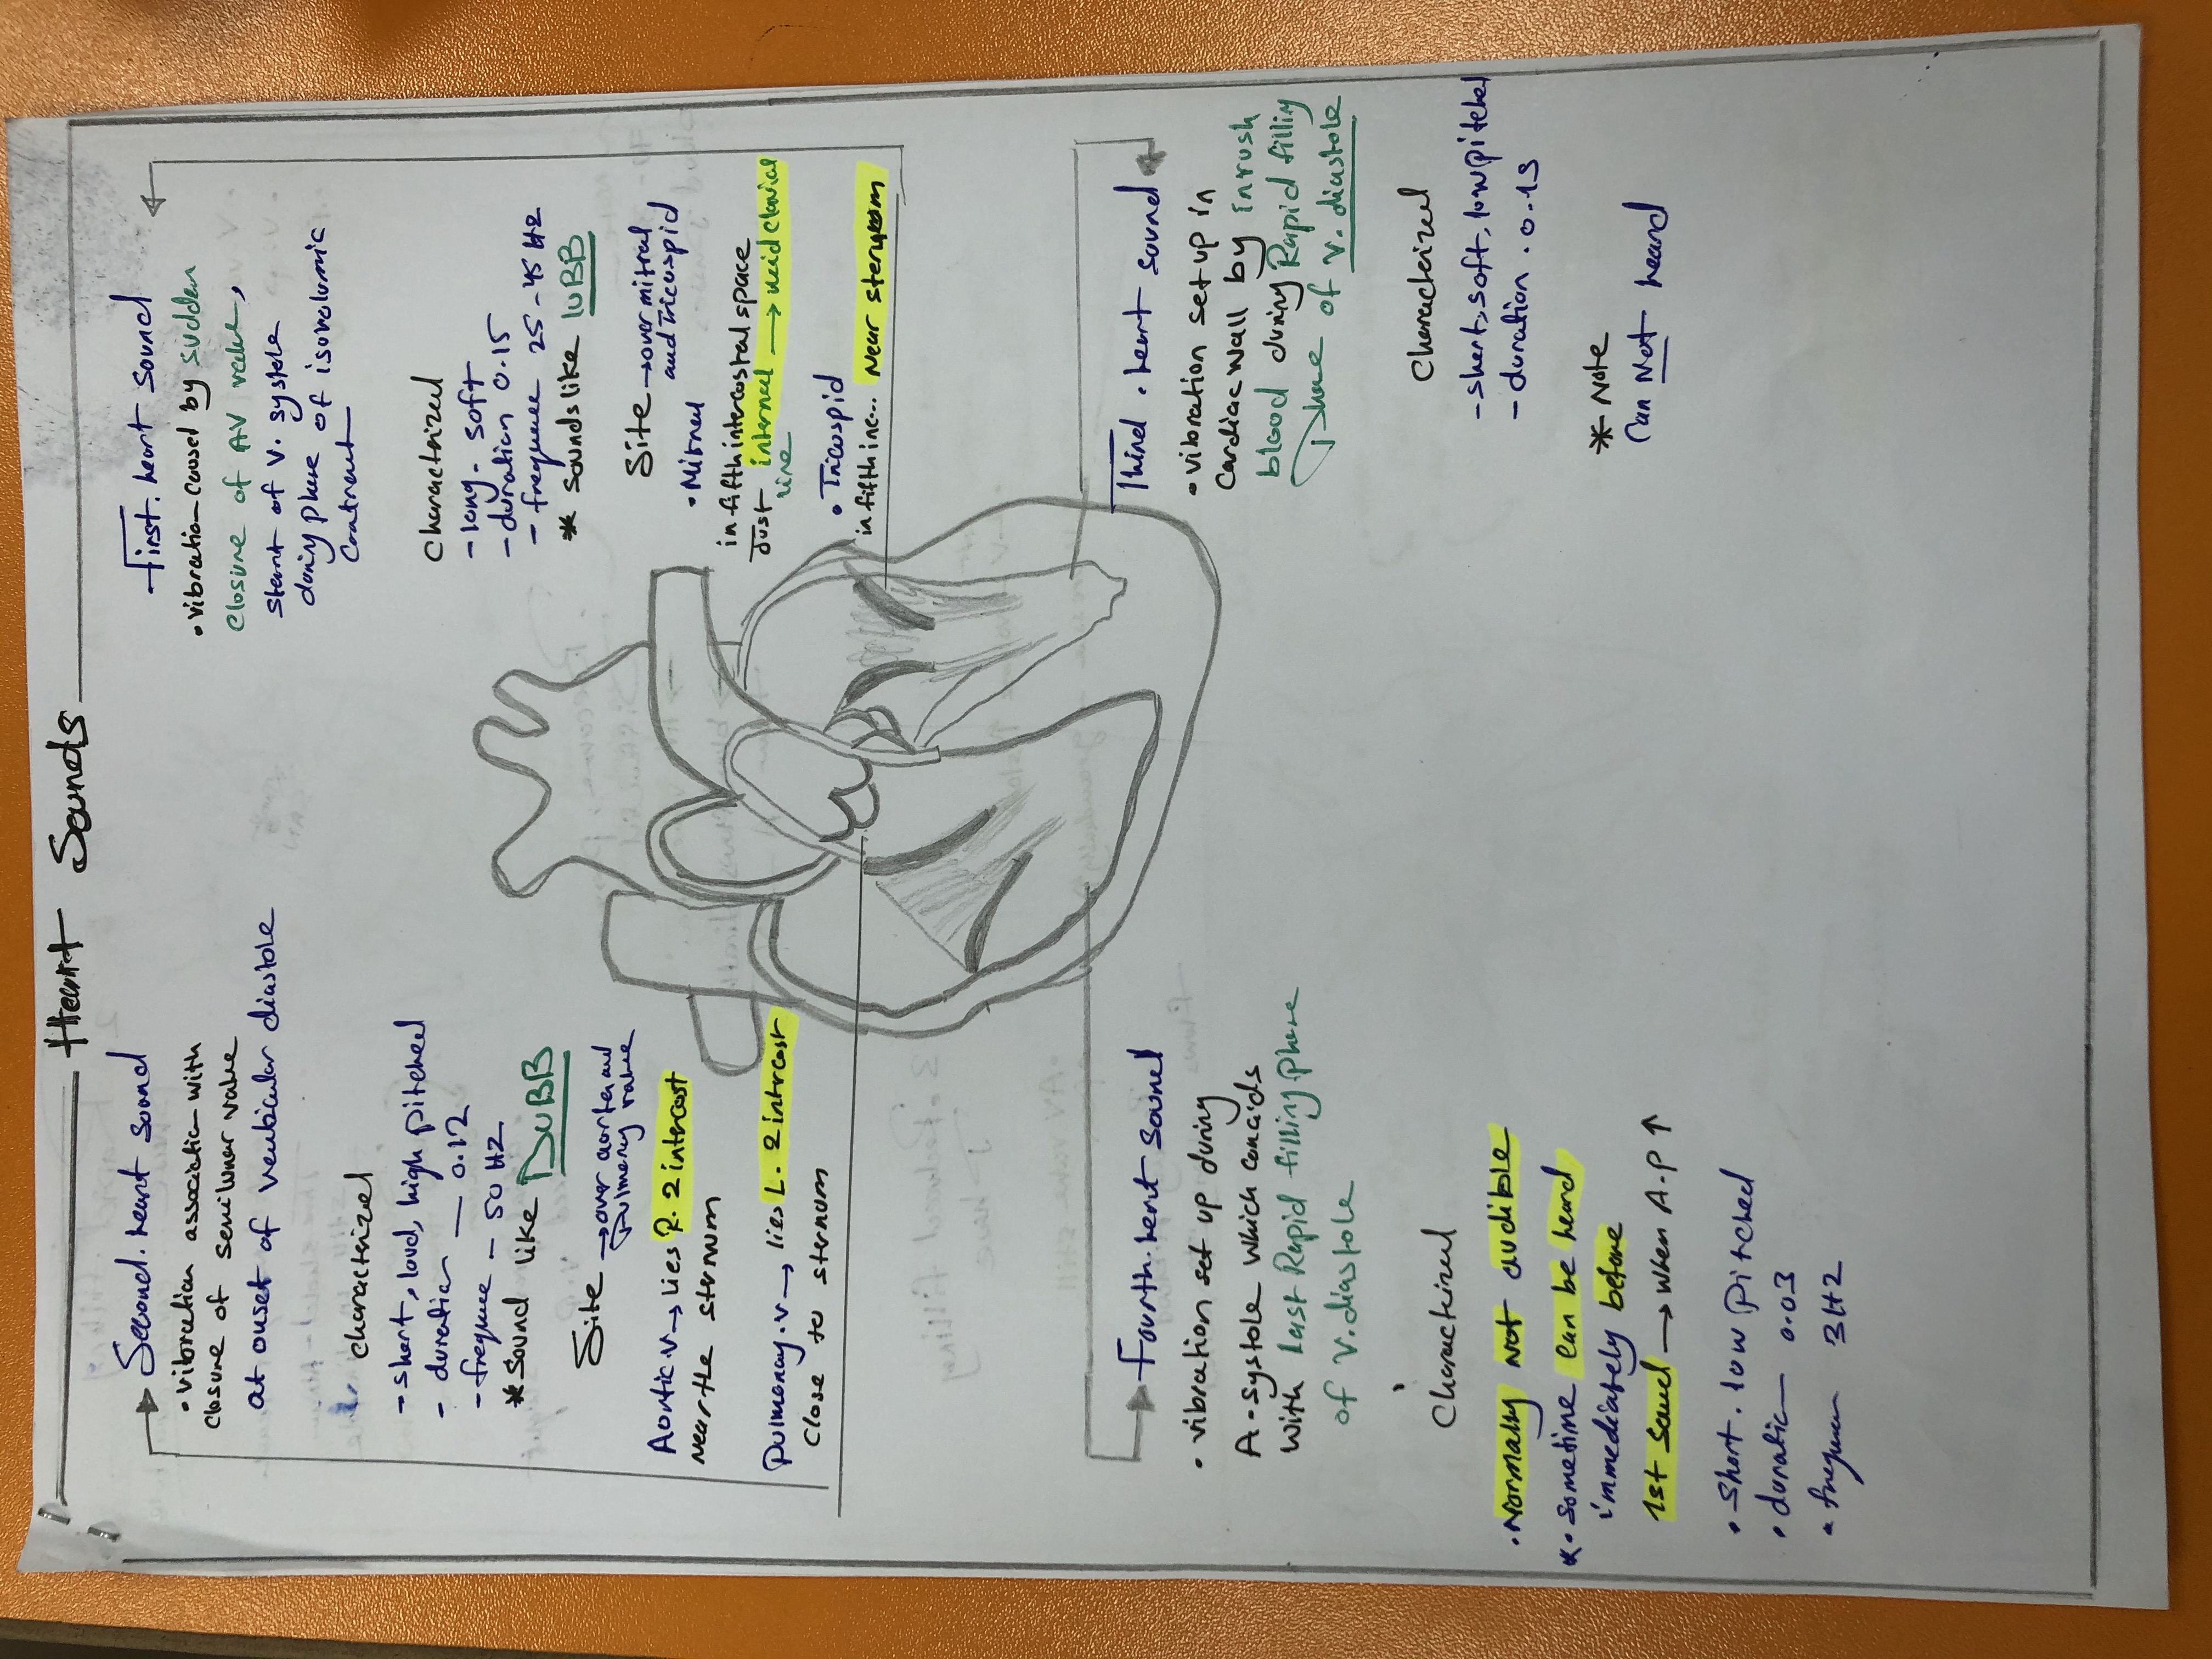 Heart Sounds
Second. heart sound
• vibration associatic-with
closure of semiluner valve
at onset of venbicular diastole
characterized
- short, loud, high pitched
- duration — 0.12
- freque - 50 HZ
* Sound like DUBB
Site → over aorta and
pulmenary valve
Aortic.v → Lies R. 2 intercost
near the sternum
pulmenary.v → lies L. 2 intrcost
close to sternum
First. heart sound
• vibratio-caused by sudden
closure of AV valve,
start of V. systole
during phase of isovolumic
Contrenct
characterized
- long - soft
- duration 0.15
- freque 25-45 HZ
* sounds like lUBB
Site → over mitral
and Tricuspid
• Mitral
in fifth intercostal space
Just internal → midclavical
line
• Tricuspid
in fifth inc... Near steruom
Fourth. heart sound
• vibration set up during
A-systole which concids
with last Rapid filling phase
of v. diastole
Characterized
• Normally Not audible
* • sometime can be heard
immediately before
1st sound → when A.P ↑
• short. low pitched
• duratic — 0.03
• frequen 3HZ
Third. heart sound
• vibration set up in
Cardiac wall by inrush
blood during Rapid filling
phase of v. diastole
Characterized
- short, soft, low pitched
- duration. 0.1s
* Note
Can Not heard